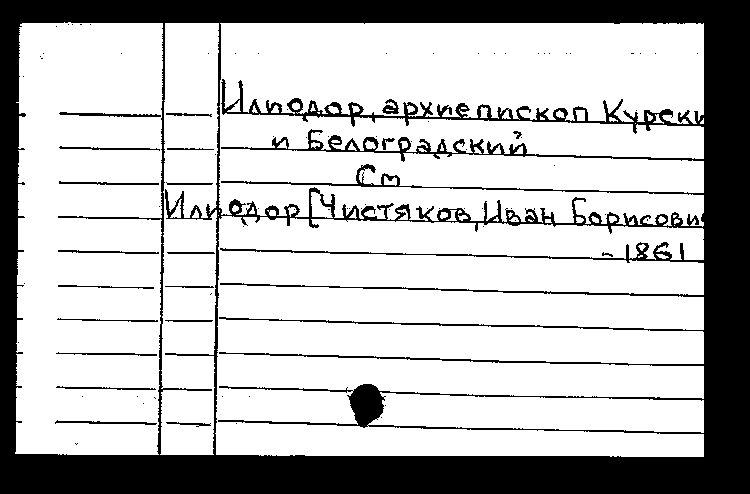 Илиодор, архиепископ Курски
и Белоградский
См
Илиодор [Чистяков, Иван Борисови
- 1861